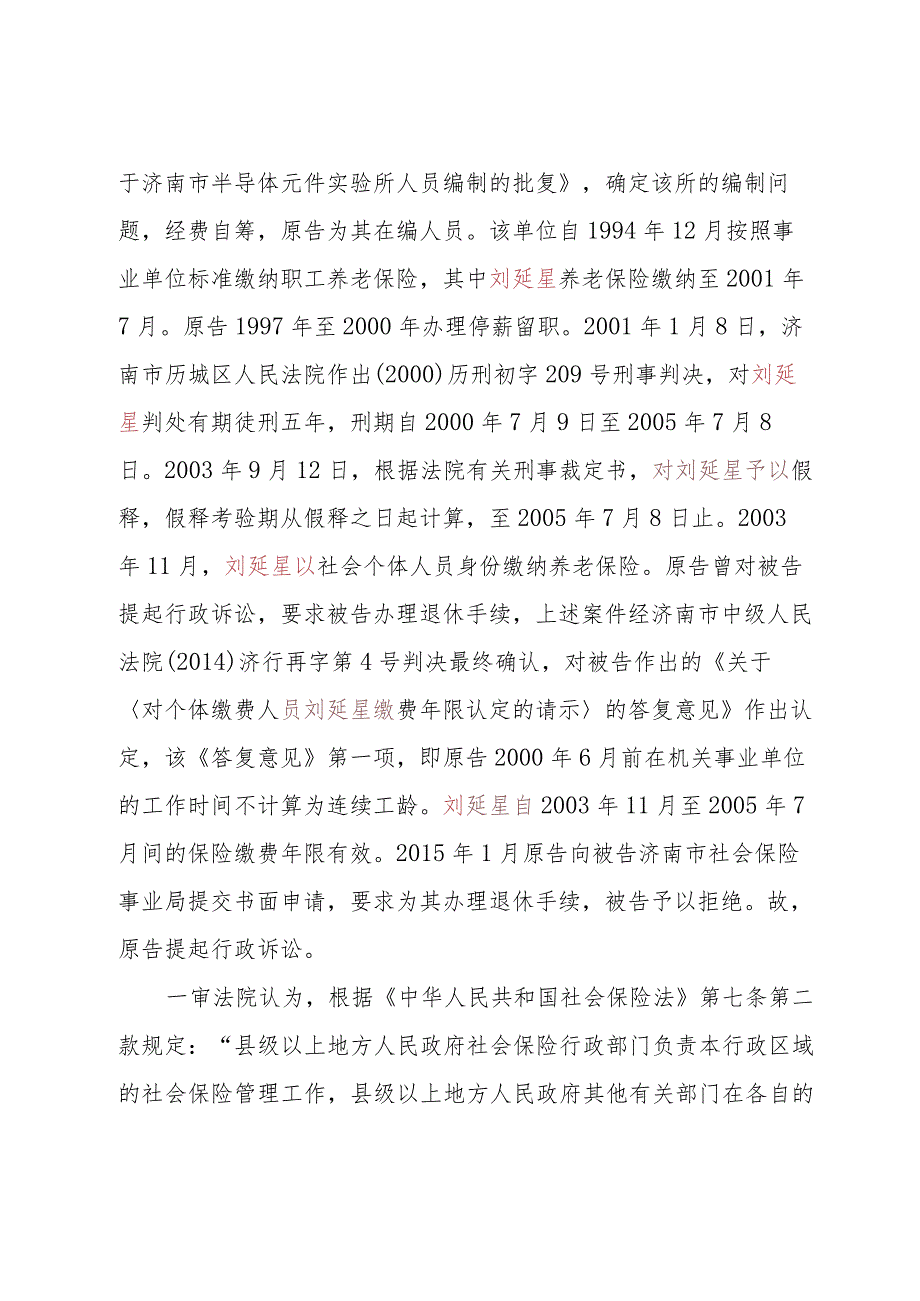 于济南市半导体元件实验所人员编制的批复》，确定该所的编制问
题，经费自筹，原告为其在编人员。该单位自 1994 年 12 月按照事
业单位标准缴纳职工养老保险，其中刘延星养老保险缴纳至 2001 年
7 月。原告 1997 年至 2000 年办理停薪留职。2001 年 1 月 8 日，济
南市历城区人民法院作出(2000)历刑初字 209 号刑事判决，对刘延
星判处有期徒刑五年，刑期自 2000 年 7 月 9 日至 2005 年 7 月 8
日。2003 年 9 月 12 日，根据法院有关刑事裁定书，对刘延星予以假
释，假释考验期从假释之日起计算，至 2005 年 7 月 8 日止。2003
年 11 月，刘延星以社会个体人员身份缴纳养老保险。原告曾对被告
提起行政诉讼，要求被告办理退休手续，上述案件经济南市中级人民
法院(2014)济行再字第 4 号判决最终确认，对被告作出的《关于
〈对个体缴费人员刘延星缴费年限认定的请示〉的答复意见》作出认
定，该《答复意见》第一项，即原告 2000 年 6 月前在机关事业单位
的工作时间不计算为连续工龄。刘延星自 2003 年 11 月至 2005 年 7
月间的保险缴费年限有效。2015 年 1 月原告向被告济南市社会保险
事业局提交书面申请，要求为其办理退休手续，被告予以拒绝。故，
原告提起行政诉讼。
一审法院认为，根据《中华人民共和国社会保险法》第七条第二
款规定：“县级以上地方人民政府社会保险行政部门负责本行政区域
的社会保险管理工作，县级以上地方人民政府其他有关部门在各自的